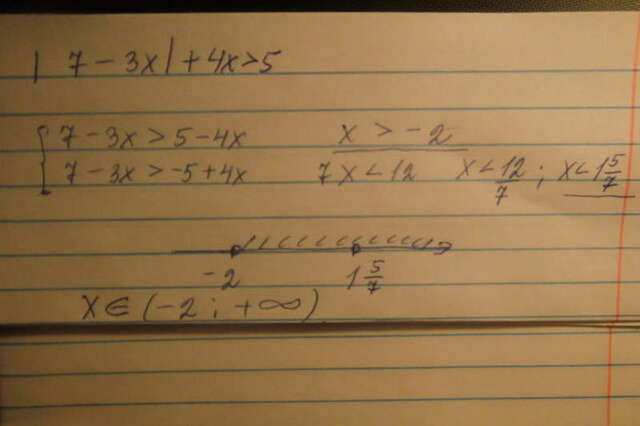 | 7 - 3x | + 4x > 5
{ 7 - 3x > 5 - 4x x > -2
7 - 3x > -5 + 4x 7x < 12 x < 12/7 ; x < 1 5/7
-2 1 5/7
x ∈ (-2 ; +∞)